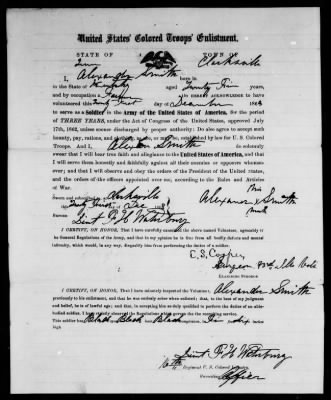 United States' Colored Troops' Enlistment.
STATE OF TOWN OF
Tenn Clarksville
I, Alexander Smith born in
in the State of Kentucky aged Twenty Five years,
and by occupation a Farmer DO HEREBY ACKNOWLEDGE to have
volunteered this day of December 1863
to serve as a Soldier in the Army of the United States of America, for the period
of THREE YEARS, under the Act of Congress of the United States, approved July
17th, 1862, unless sooner discharged by proper authority: Do also agree to accept such
bounty, pay, rations, and clothing, as are, or may be, established by law for U. S. Colored
Troops. And I, Alexander Smith do solemnly
swear that I will bear true faith and allegiance to the United States of America, and that
I will serve them honestly and faithfully against all their enemies or opposers whomso-
ever; and that I will observe and obey the orders of the President of the United States,
and the orders of the officers appointed over me, according to the Rules and Articles
of War.
Sworn and subscribed to, at Clarksville his
this day of Dec 1863 Alexander Smith
BEFORE mark
Lieut P. H. Waterbury
I CERTIFY, ON HONOR, That I have carefully examined the above named Volunteer, agreeably to
the General Regulations of the Army, and that in my opinion he is free from all bodily defects and mental
infirmity, which would, in any way, disqualify him from performing the duties of a soldier.
C. S. Cooper
Surgeon 83d Ills Vols
EXAMINING SURGEON
I CERTIFY, ON HONOR, That I have minutely inspected the Volunteer, Alexander Smith
previously to his enlistment, and that he was entirely sober when enlisted; that, to the best of my judgment
and belief, he is of lawful age; and that, in accepting him as duly qualified to perform the duties of an able-bodied
soldier, I have strictly observed the Regulations which govern the recruiting service.
This soldier has Black eyes, Black hair, Black complexion, is feet six inches
high
Lieut P. H. Waterbury
16th Regiment U. S. Colored Infantry,
Recruiting Officer